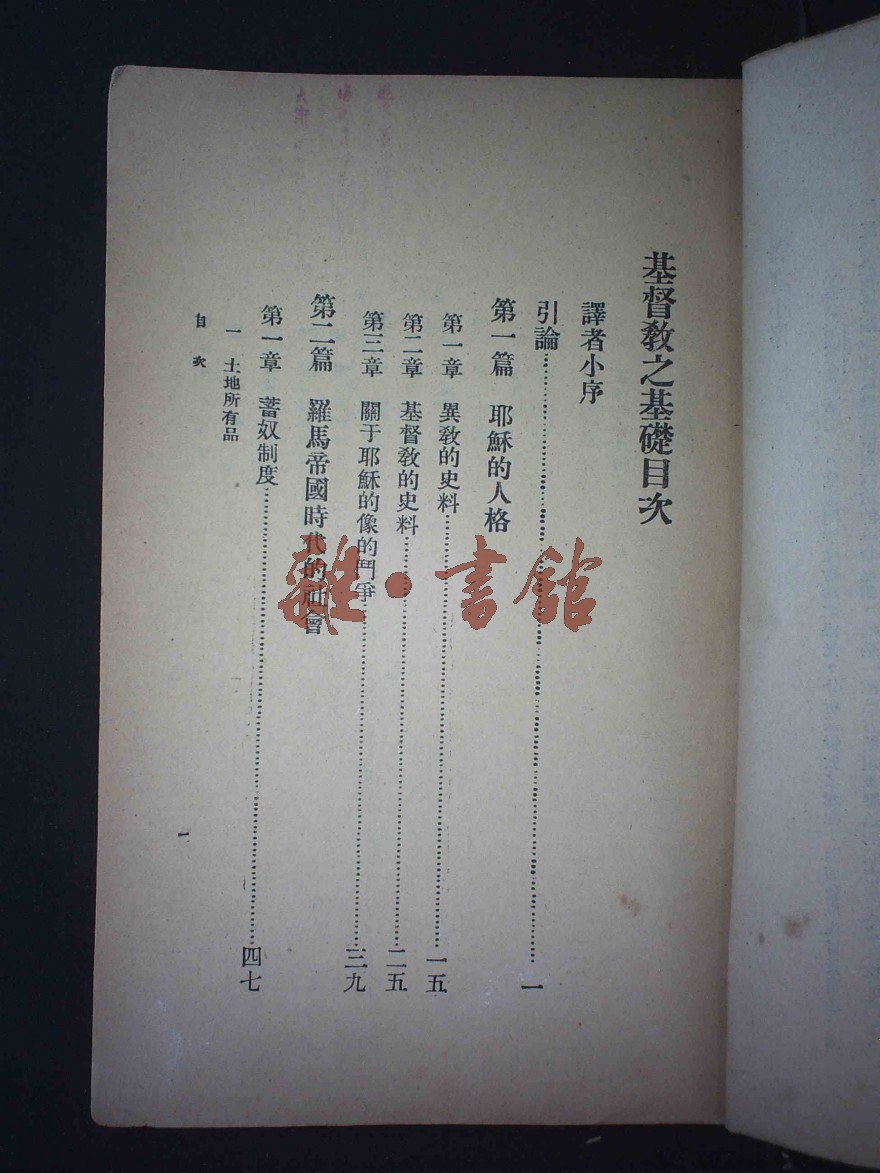 基督教之基礎目次
譯者小序
引論……一
第一篇 耶穌的人格
第一章 異教的史料……一五
第二章 基督教的史料……二五
第三章 關于耶穌的像的鬥爭……三九
第二篇 羅馬帝國時代的社會
第一章 蓄奴制度……四七
一 土地所有品
目次
一
雜·書館